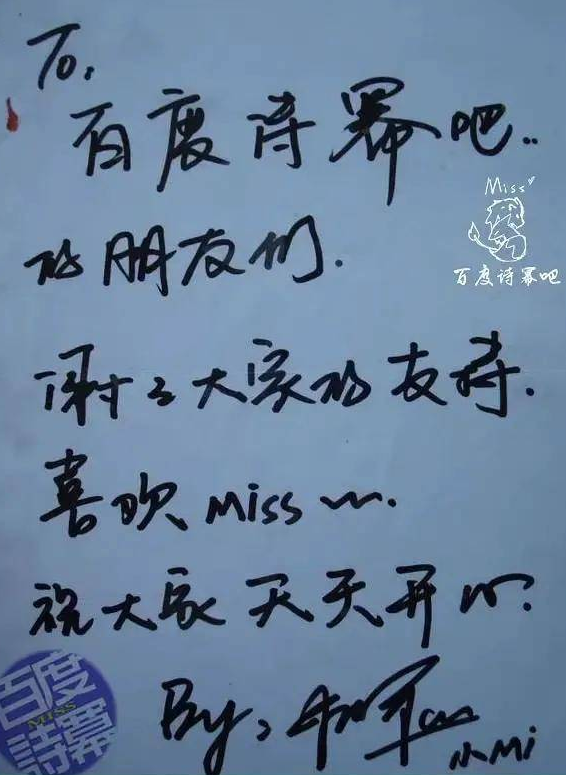 To.
百度诗幂吧..
的朋友们.
谢谢大家的支持.
喜欢Miss~~.
祝大家天天开心.
By,
小Mi
Miss
百度诗幂吧
百度
MISS